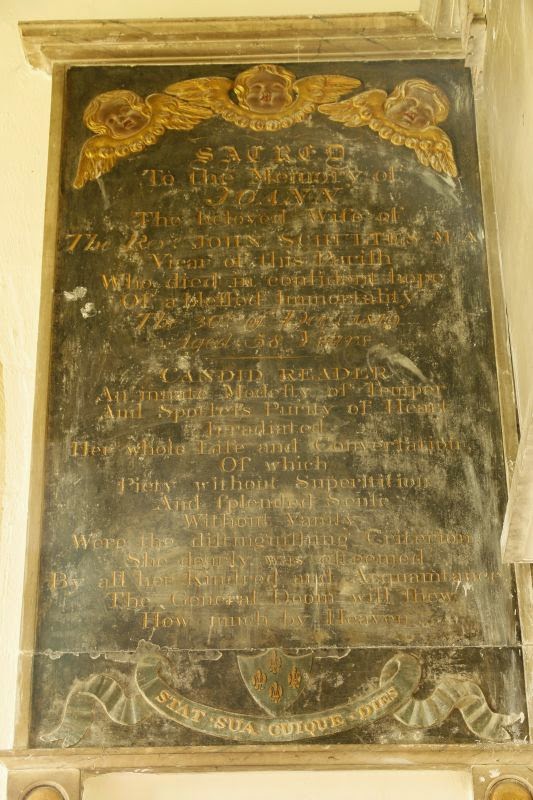 SACRED
To the Memory of
JOANN
The beloved Wife of
The Revd. JOHN M.A
Vicar of this Parish
Who died in confident hope
Of a blessed Immortality
The of
Aged 38 Years
CANDID READER
An innate Modesty of Temper
And Spotless Purity of Heart
Irradiated
Her whole Life and Conversation
Of which
Piety without Superstition
And splended Sense
Without Vanity
Were the distinguishing Criterion
She dearly was esteemed
By all her Kindred and Acquaintance
The General Doom will shew
How much by Heaven
STAT SUA CUIQUE DIES